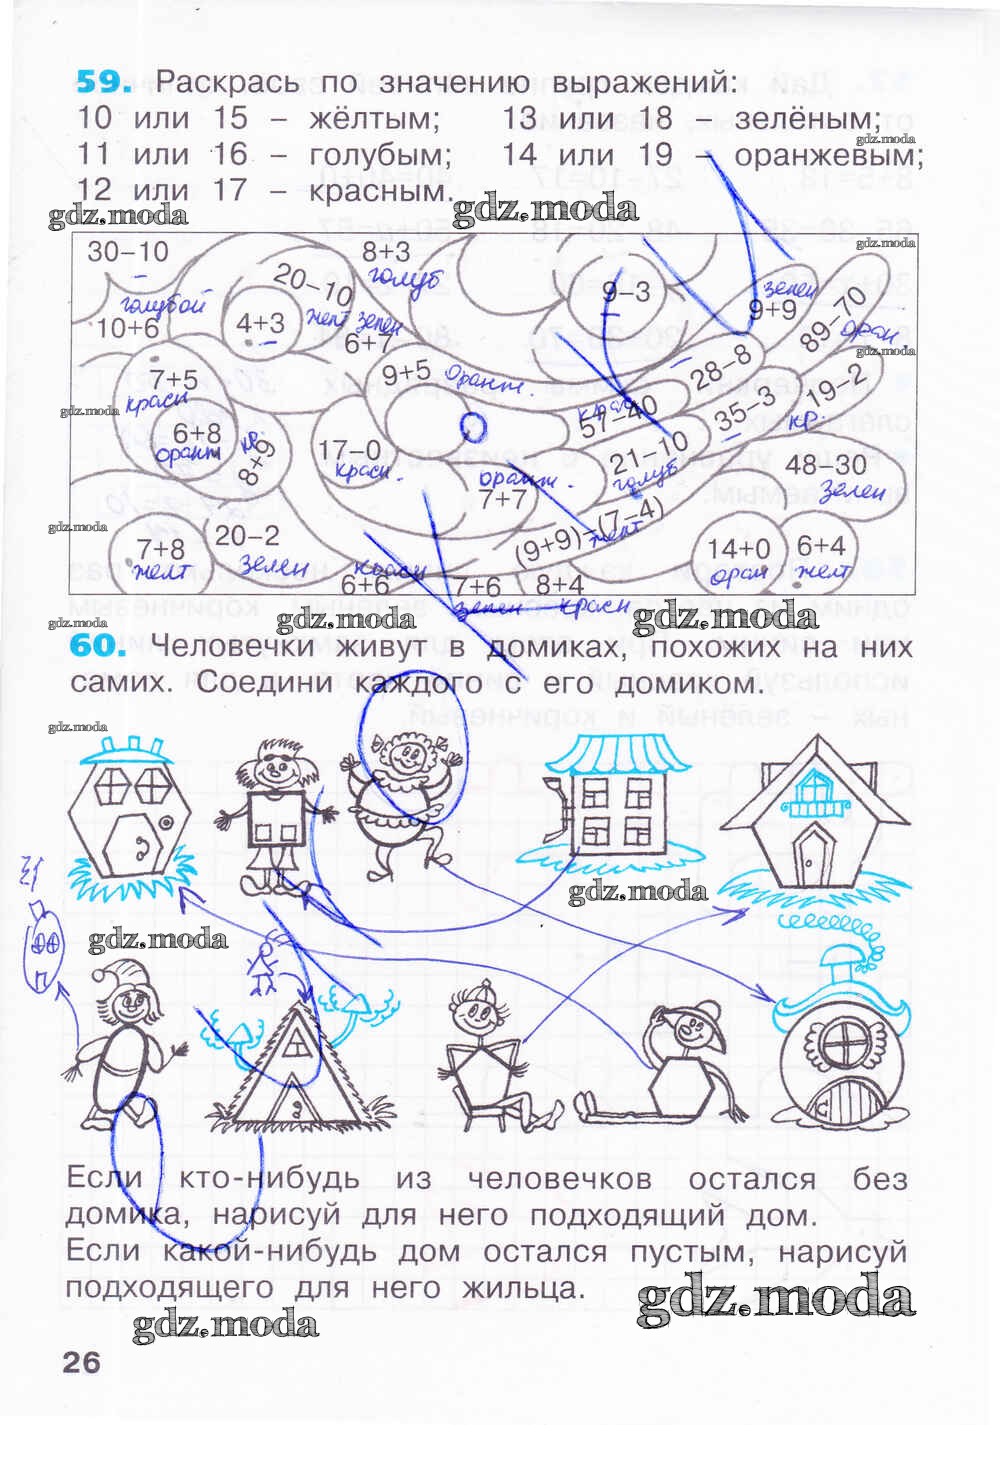 59. Раскрась по значению выражений:
10 или 15 – жёлтым; 13 или 18 – зелёным;
11 или 16 – голубым; 14 или 19 – оранжевым;
12 или 17 – красным.
gdz.moda
gdz.moda
gdz.moda
30–10
8+3
голуб
gdz.moda
20–10
желт
голубой
10+6
4+3
зелен
6+7
9–3
зелен
9+9
89–70
оран
gdz.moda
7+5
красн
9+5
Оранж.
28–8
19–2
кр.
gdz.moda
6+8
оранж
кр
8+9
17–0
красн.
крас
57–40
35–3
21–10
голуб
48–30
Зелен
оранж.
7+7
gdz.moda
7+8
желт
20–2
зелен
(9+9)–(7–4)
желт
14+0
оран
6+4
желт
красн
6+6
7+6
зелен
8+4
красн
gdz.moda
gdz.moda
gdz.moda
60. Человечки живут в домиках, похожих на них
самих. Соедини каждого с его домиком.
gdz.moda
gdz.moda
gdz.moda
Если кто-нибудь из человечков остался без
домика, нарисуй для него подходящий дом.
Если какой-нибудь дом остался пустым, нарисуй
подходящего для него жильца.
gdz.moda
gdz.moda
26